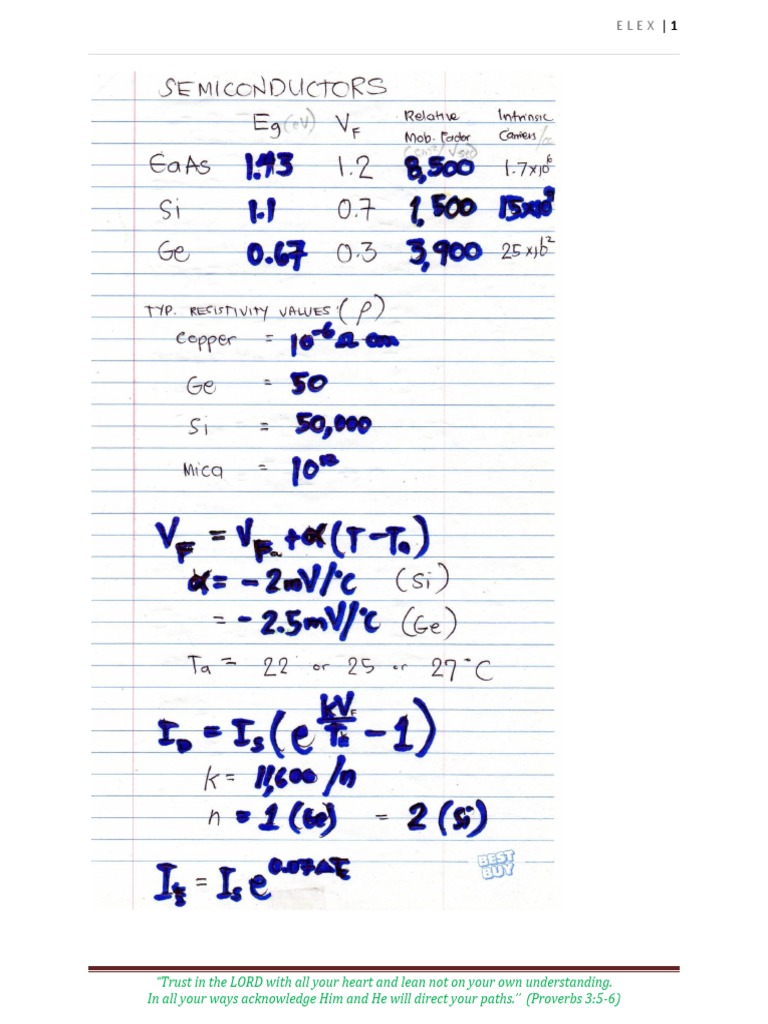 ELEX | 1
SEMICONDUCTORS
Eg (eV) VF Relative Mob. Factor (cm²/V sec) Intrinsic Carriers
EaAs 1.43 1.2 8,500 1.7x10⁶
Si 1.1 0.7 1,500 15x10⁹
Ge 0.67 0.3 3,900 25x10¹²
TYP. RESISTIVITY VALUES: (ρ)
Copper = 10⁻⁶ Ω cm
Ge = 50
Si = 50,000
Mica = 10¹²
VF = VFa + α(T-Ta)
α = -2mV/°C (Si)
= -2.5mV/°C (Ge)
Ta = 22 or 25 or 27°C
ID = IS(e^(kVF/Tk) - 1)
k = 11,600/n
n = 1 (Ge) = 2 (Si)
BEST BUY
Is = Is e^0.07Δt
"Trust in the LORD with all your heart and lean not on your own understanding.
In all your ways acknowledge Him and He will direct your paths." (Proverbs 3:5-6)